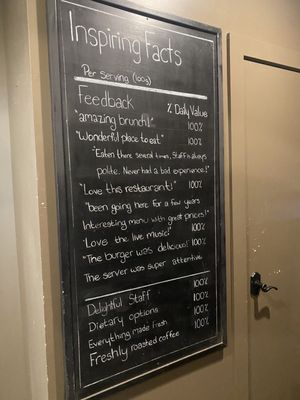 Inspiring Facts
Per serving (100g)
Feedback % Daily Value
"amazing brunch!" 100%
"Wonderful place to eat" 100%
"Eaten there several times, Staff is always
polite. Never had a bad experience!"
"Love this restaurant!" 100%
"been going here for a few years
Interesting menu with great prices!"
"Love the live music!" 100%
"The burger was delicious! 100%
The server was super attentive
Delightful Staff 100%
Dietary options 100%
Everything made fresh 100%
Freshly roasted coffee 100%